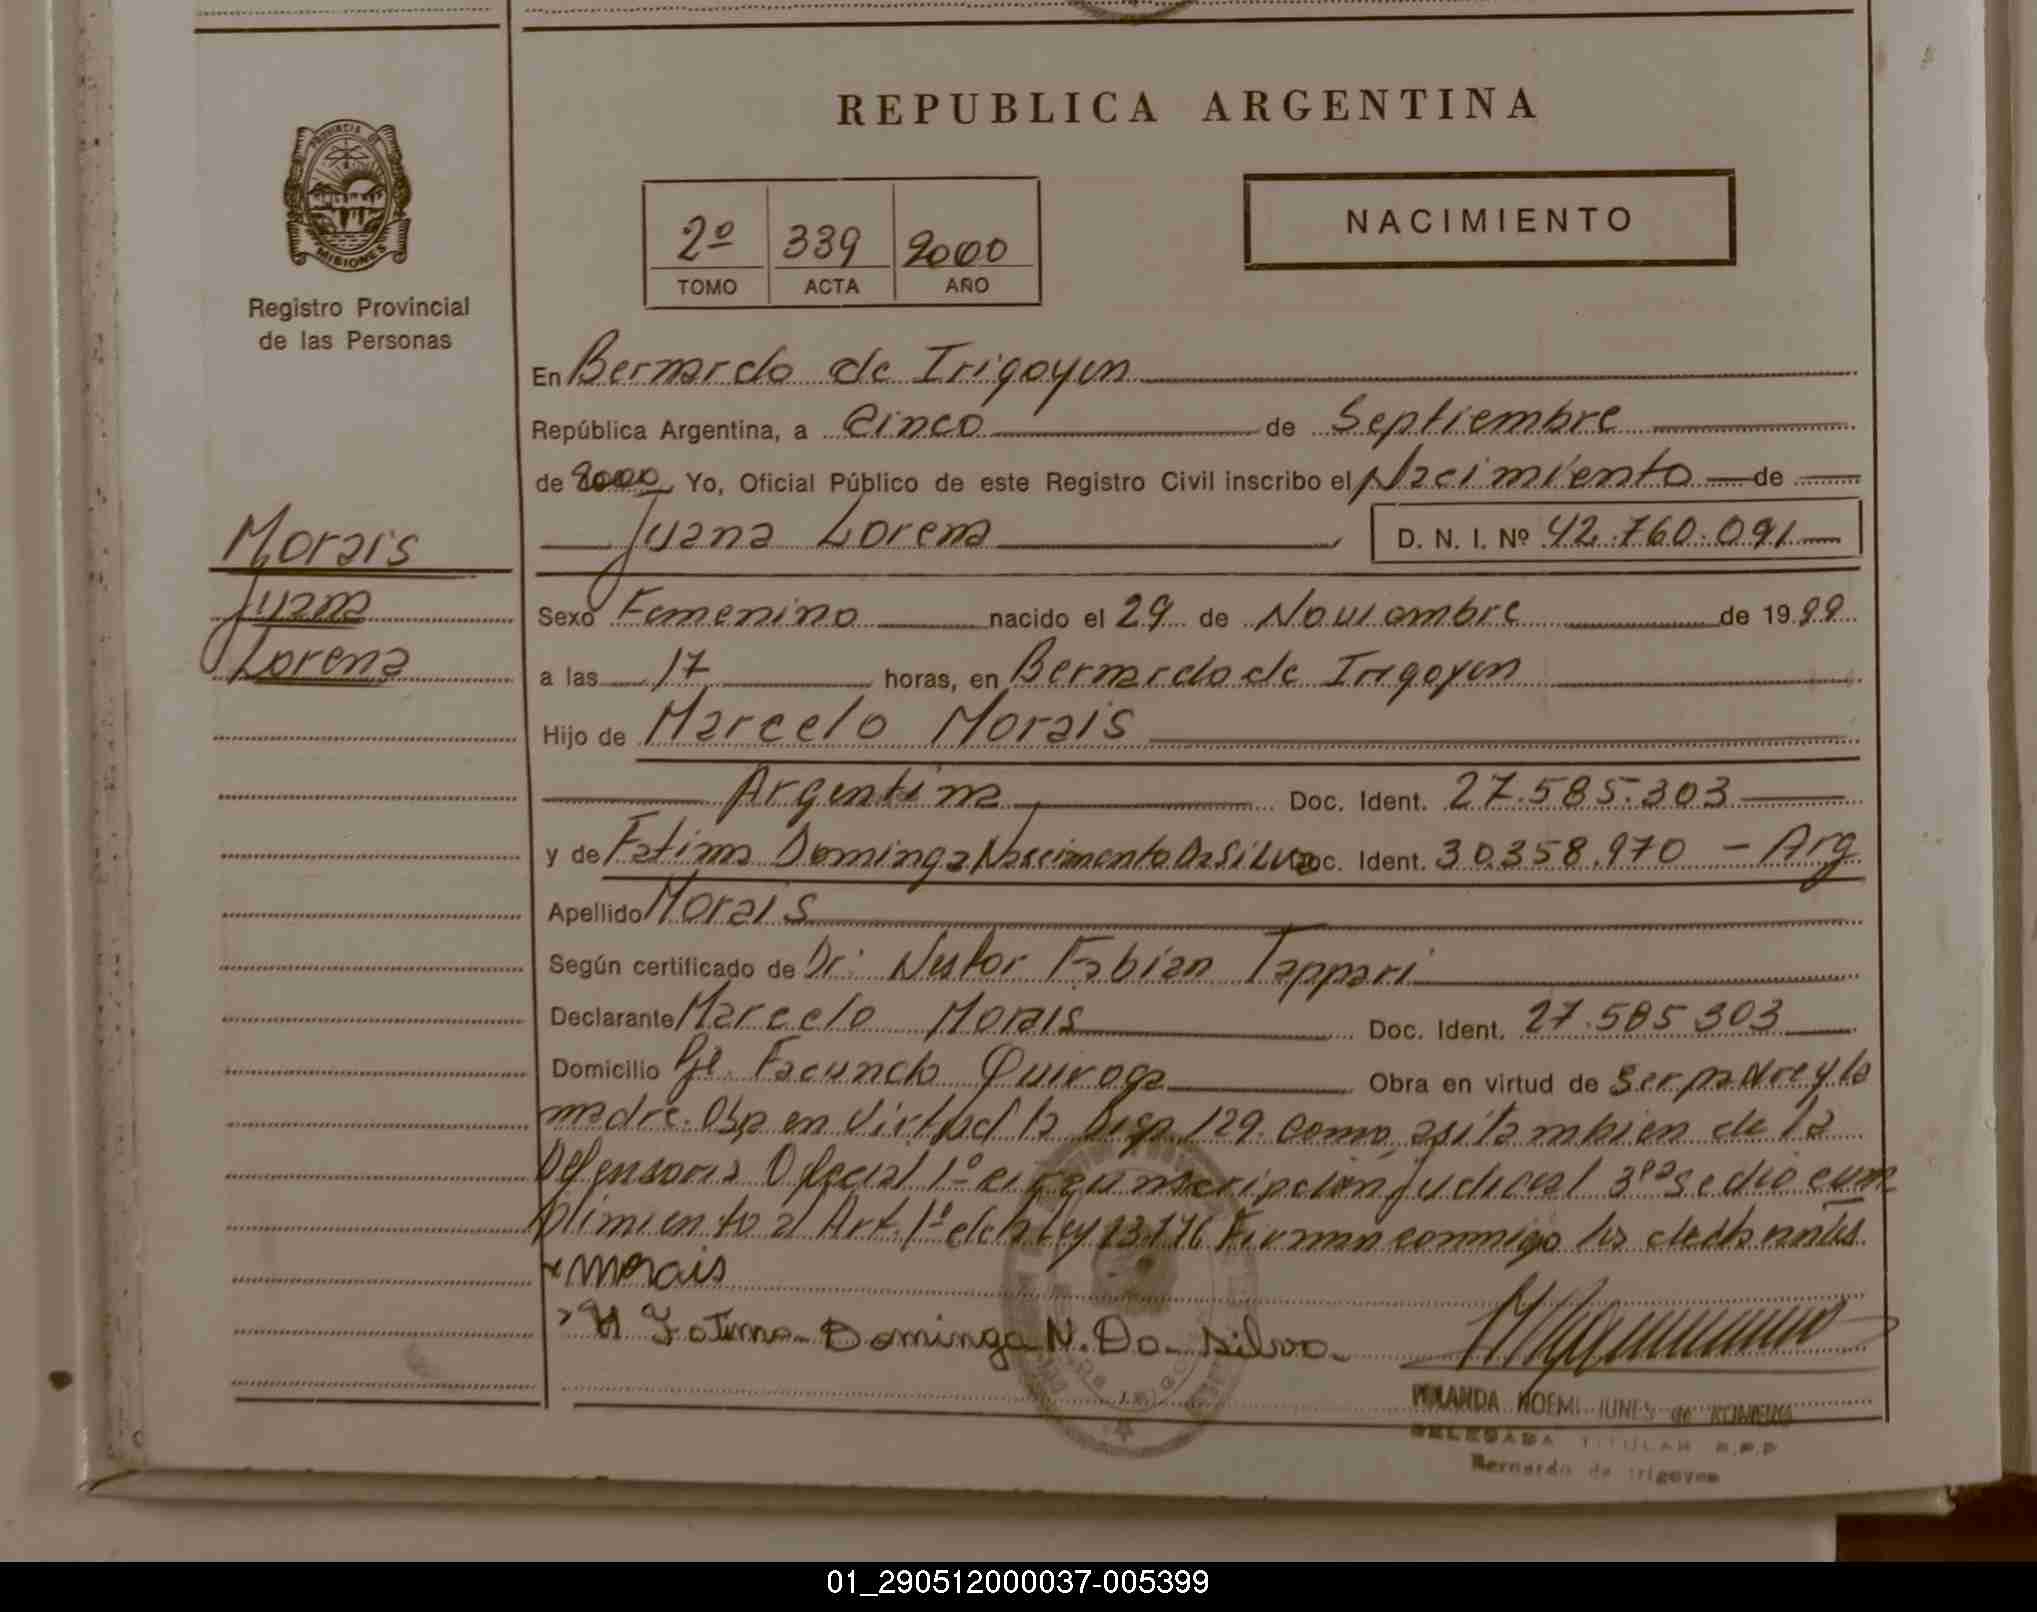 REPUBLICA ARGENTINA
NACIMIENTO
2º 339 2000
TOMO ACTA AÑO
PROVINCIA DE
MISIONES
Registro Provincial
de las Personas
Morais
Juana
Lorena
En Bernardo de Irigoyen
República Argentina, a Cinco de Septiembre
de 2000 Yo, Oficial Público de este Registro Civil inscribo el Nacimiento de
Juana Lorena D. N. I. Nº 42.760.091
Sexo Femenino nacido el 29 de Noviembre de 1999
a las 17 horas, en Bernardo de Irigoyen
Hijo de Marcelo Morais
Argentina Doc. Ident. 27.585.303
y de Fatima Dominga Nascimento Da Silva Doc. Ident. 30.358.970 - Arg
Apellido Morais
Según certificado de Dr: Nestor Fabian Tappari
Declarante Marcelo Morais Doc. Ident. 27.585 303
Domicilio Gl. Facundo Quiroga Obra en virtud de ser padre y la
madre. Obra en Virtud la Disp. 129. como asi tambien de la
Defensoria Oficial 1º circunscripcion judicial 3ª se dio cum
plimiento al Art. 1º de la ley Firman conmigo los declarantes
x morais
x Fatima Dominga N. Da Silva
YOLANDA NOEMI IUNES de
DELEGADA TITULAR R.P.P
Bernardo de Irigoyen
01_290512000037-005399